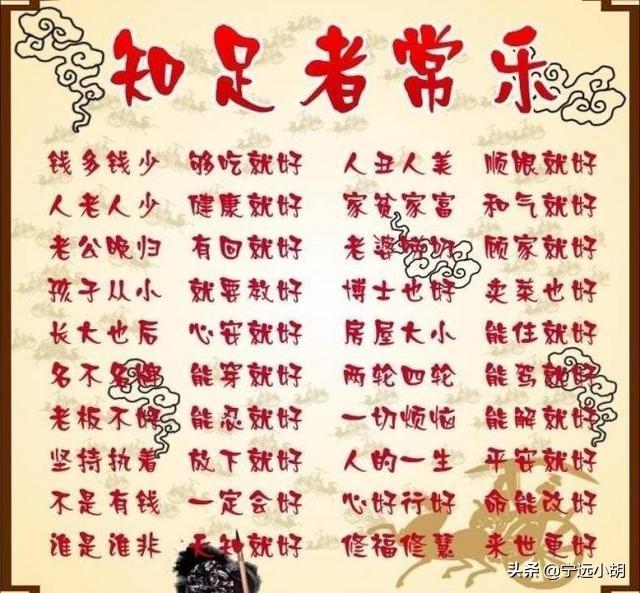 知足者常乐
钱多钱少 够吃就好 人丑人美 顺眼就好
人老人少 健康就好 家贫家富 和气就好
老公晚归 有回就好 老婆唠叨 顾家就好
孩子从小 就要教好 博士也好 卖菜也好
长大也后 心安就好 房屋大小 能住就好
名不名牌 能穿就好 两轮四轮 能驾就好
老板不好 能忍就好 一切烦恼 能解就好
坚持执着 放下就好 人的一生 平安就好
不是有钱 一定会好 心好行好 命能改好
谁是谁非 天知就好 修福修慧 来世更好
头条@宁远小胡